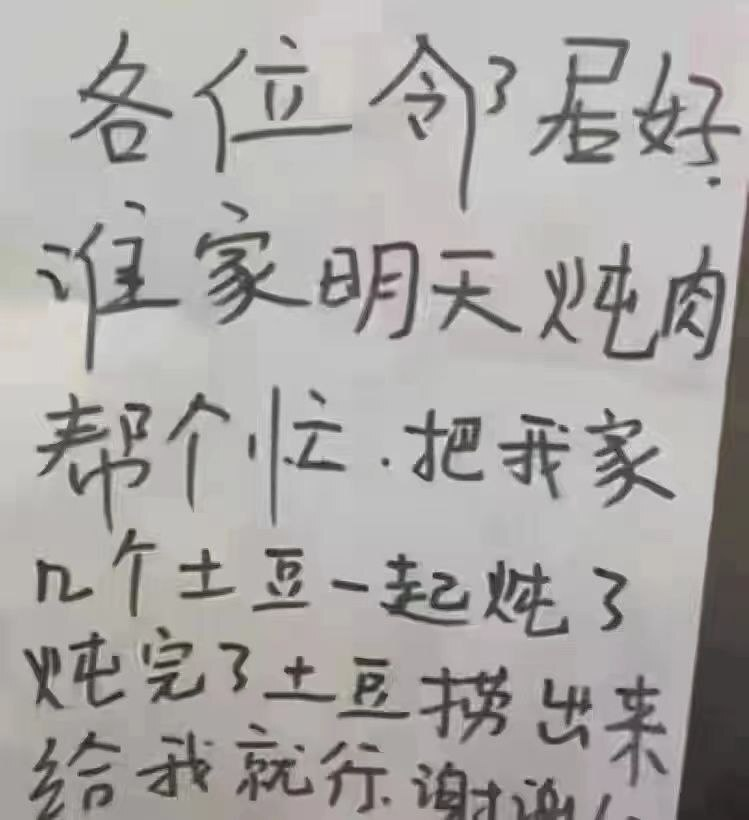 各位邻居好
谁家明天炖肉
帮个忙.把我家
几个土豆一起炖了
炖完了土豆捞出来
给我就行.谢谢